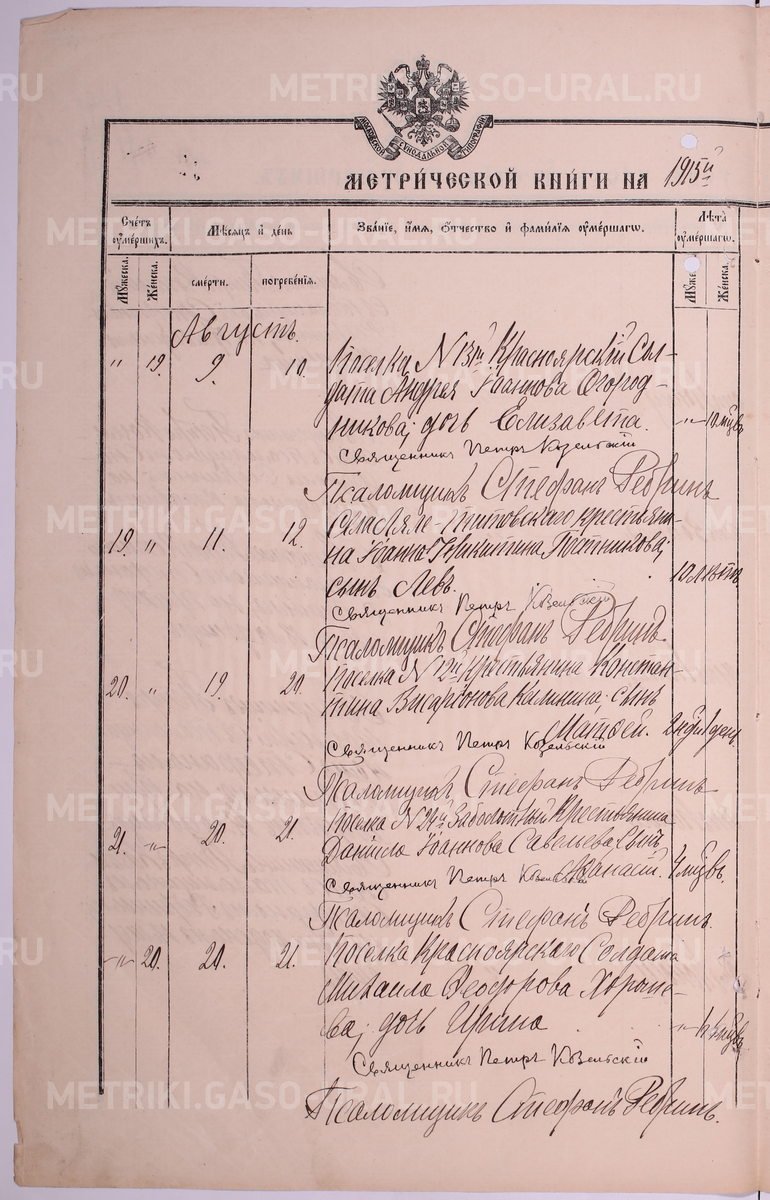 МЕТРИ́ЧЕСКОЙ КНИ́ГИ НА 1915й
Счётъ оу҆ме́ршихъ.
Мѣ́сяцъ и҆ де́нь
Зва́нїе, и҆́мя, ѻ҆́тчество и҆ фами́лїя оу҆ме́ршагѡ.
Лѣ́та оу҆ме́ршагѡ.
Мꙋ́жеска.
Же́нска.
сме́рти.
погребе́нїя.
Же́нска.
Августъ.
" 19. 9. 10. Поселка N 13й Красноярскій Сол-
дата Андрея Іоаннова Огород-
никова; дочь Елизавета. " 10 мцвъ
Священникъ Петръ Козельскій
Псаломщикъ Стефанъ Ребринъ
19. " 11. 12. крестьяни-
на Іоанна Никитина Постникова;
сынъ Левъ. 10 лѣтъ
Священникъ Петръ Козельскій
Псаломщикъ Стефанъ Ребринъ
20. " 19. 20. Поселка N 12й крестьянина Констан-
тина Висаріонова Калинина; сынъ
Матѳей. 2 нди 1 день
Священникъ Петръ Козельскій
Псаломщикъ Стефанъ Ребринъ
21. " 20. 21. Поселка N 24й Заболотный Крестьянина
Даніила Іоаннова Савельева сынъ
Аѳанасій. 4 мцвъ.
Священникъ Петръ Козельскій
Псаломщикъ Стефанъ Ребринъ.
" 20. 20. 21. Поселка Красноярскаго Солдата
Михаила Ѳеодорова Хороше-
ва; дочь Ирина "
Священникъ Петръ Козельскій
Псаломщикъ Стефанъ Ребринъ.
METRIKI.GASO-URAL.RU